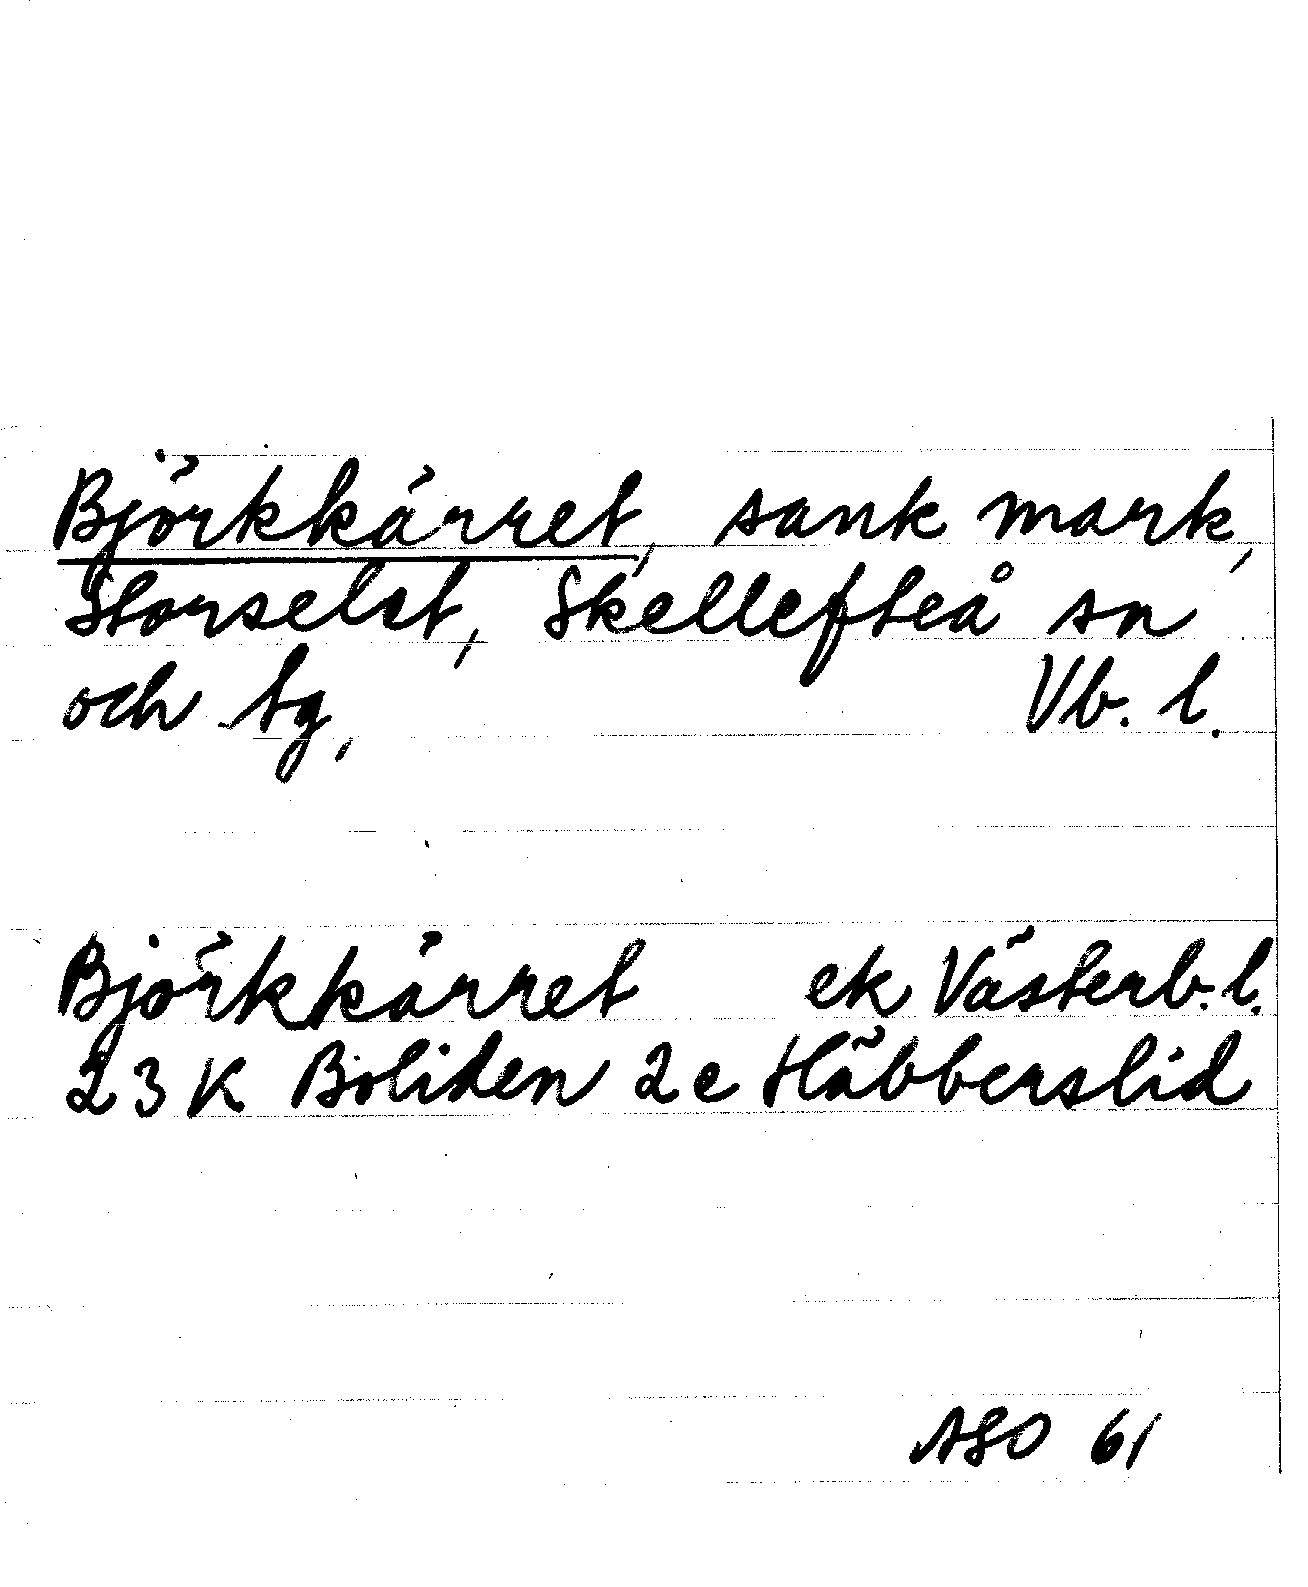 Björkkärret, sank mark,
Storselet, Skellefteå sn
och tg, Vb. l.
Björkkärret ek Västerb. l.
23 K Boliden 2 e Häbberslid
ASO 61